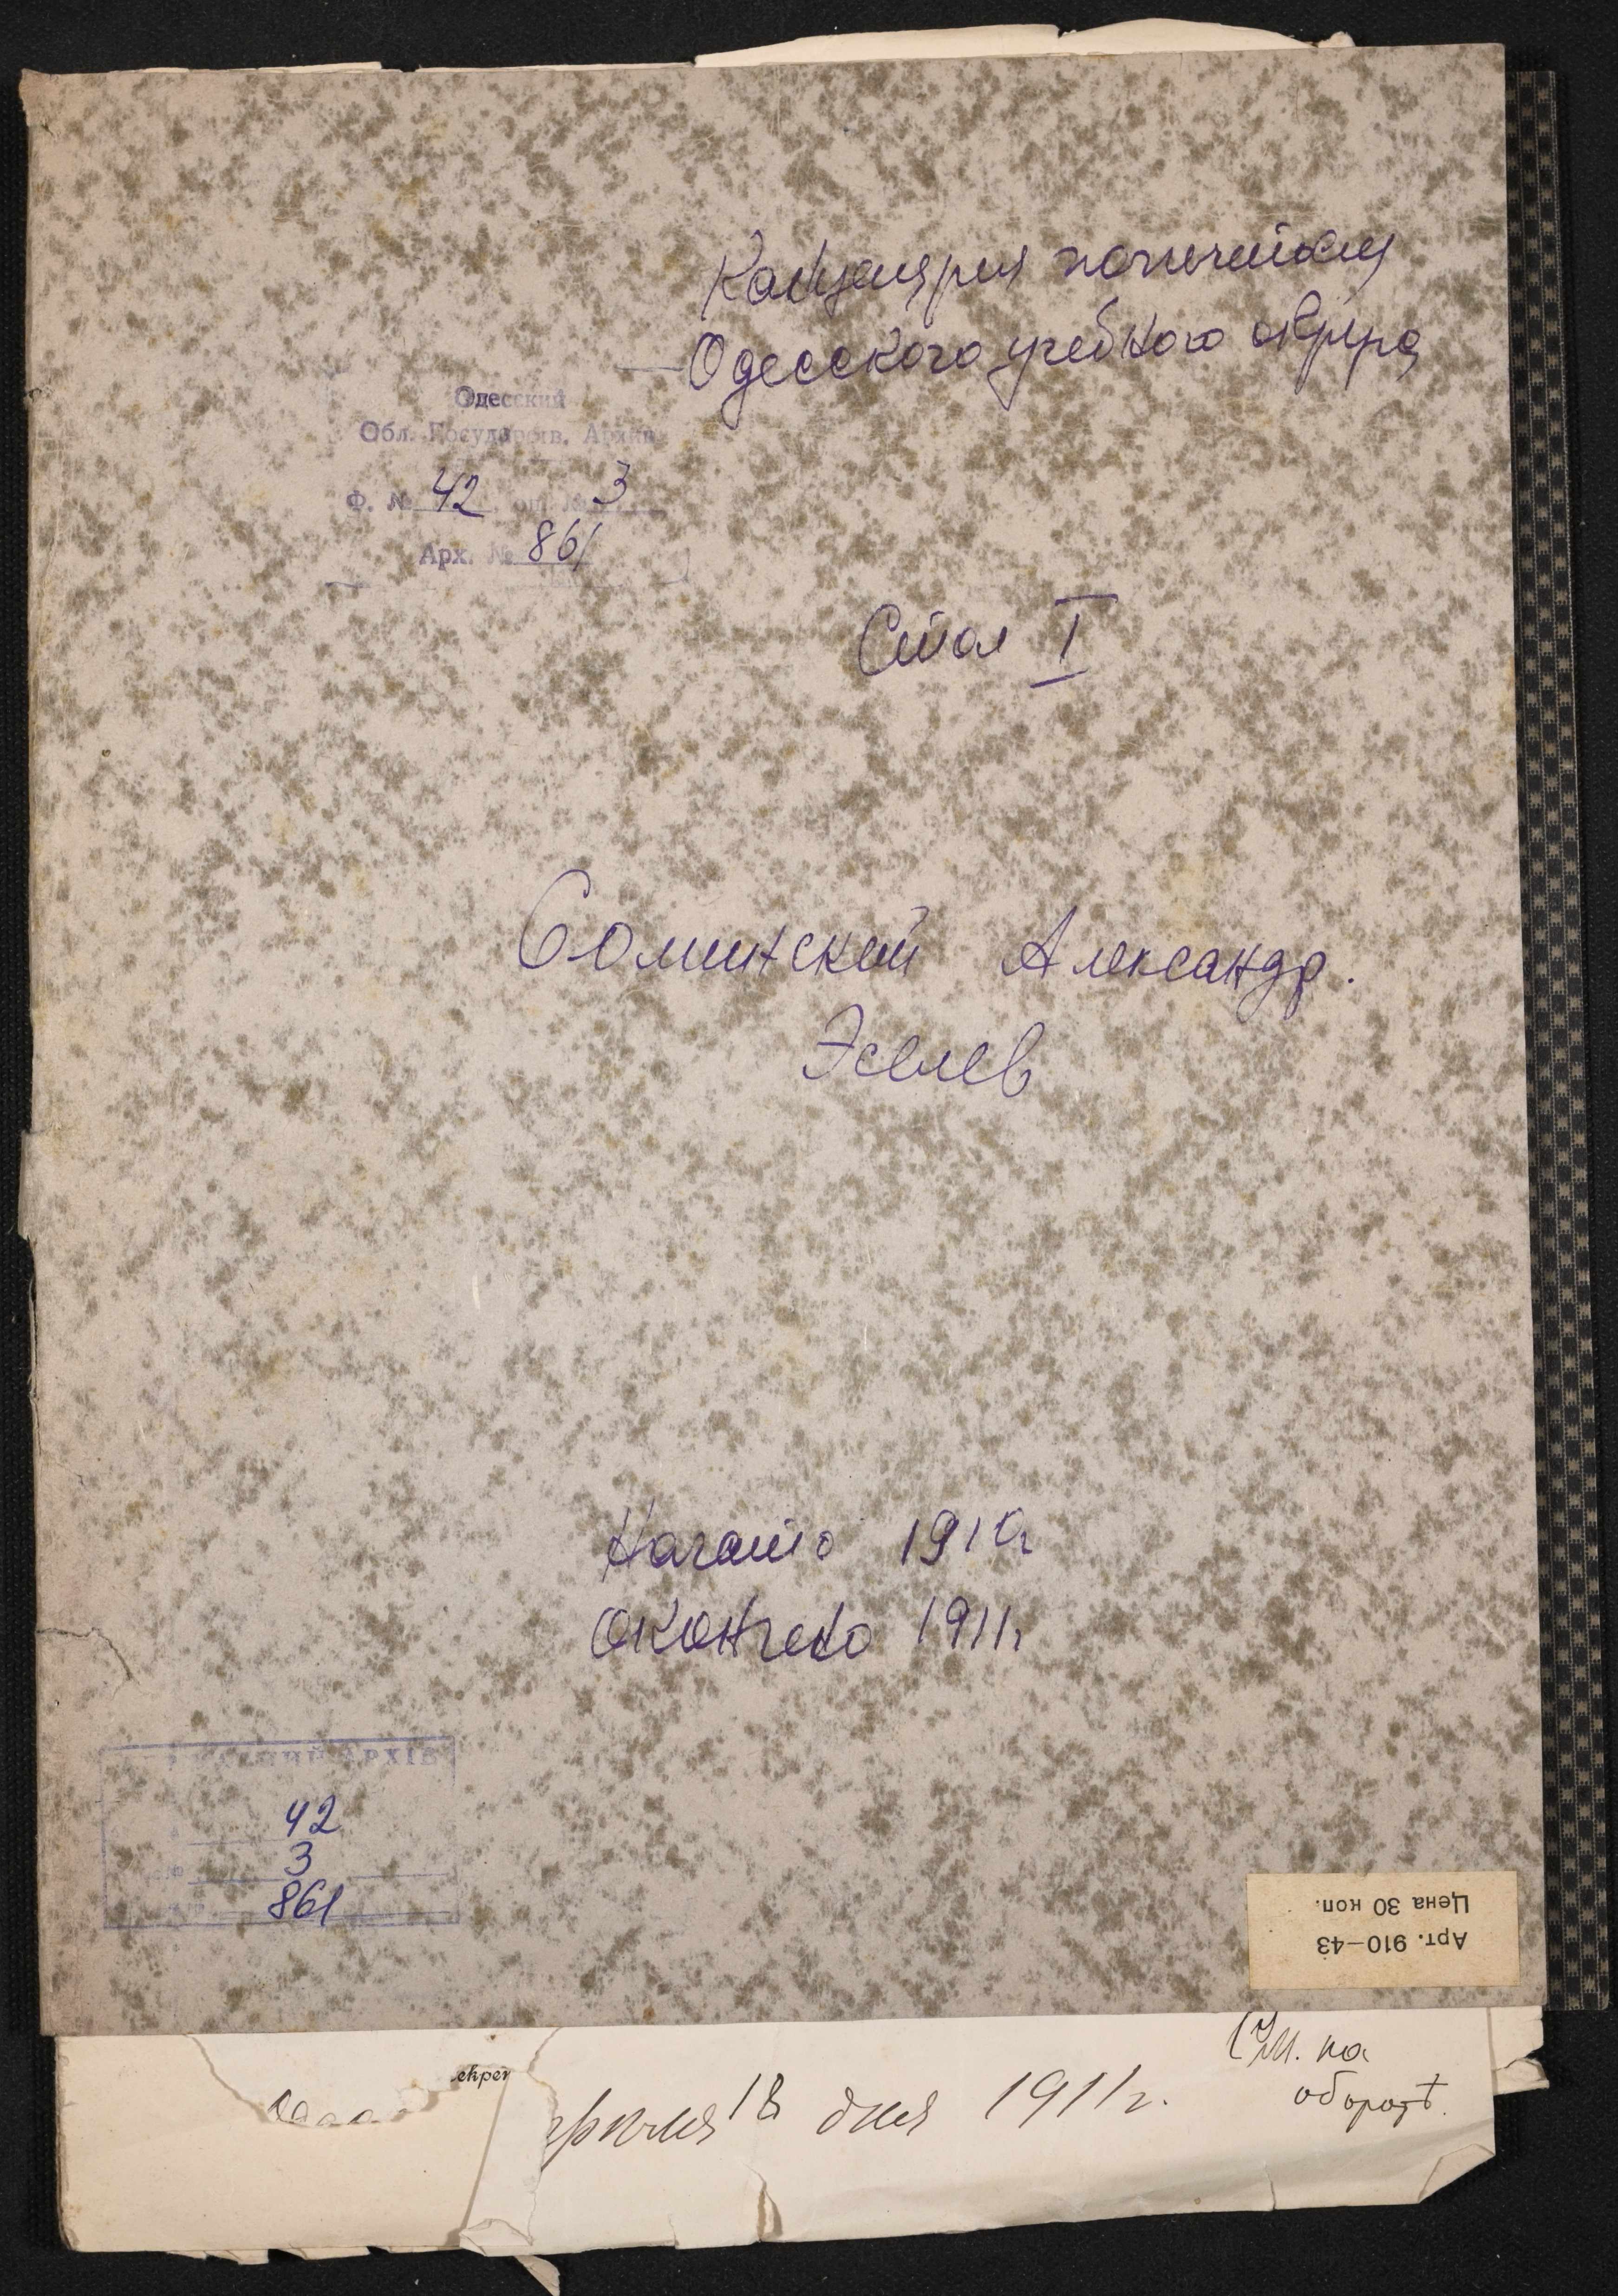 Канцелярия попечителя
Одесского учебного округа
Одесский
Обл. Государств. Архив
Ф. № 42 оп. № 3
Арх. № 861
Стол I
Соминский Александр.
Эселев
Начато 1910г
Окончено 1911г
АРХІВ
42
№ 3
861
Цена 30 коп.
Арт. 910-43
См. на
оборотѣ.
18 дня 1911г.